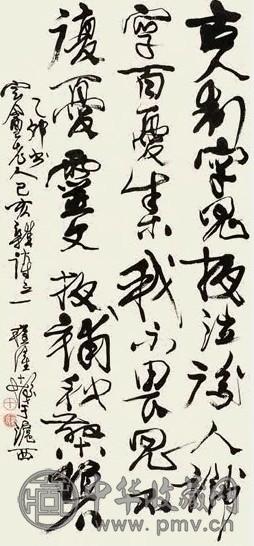 古人制字鬼夜泣後人識
字百憂集我不畏鬼不
復憂靈文夜補秋燈碧
乙卯書
定盦老人己亥雜詩之一
於滬西
中华收藏网
www.pmv.cn